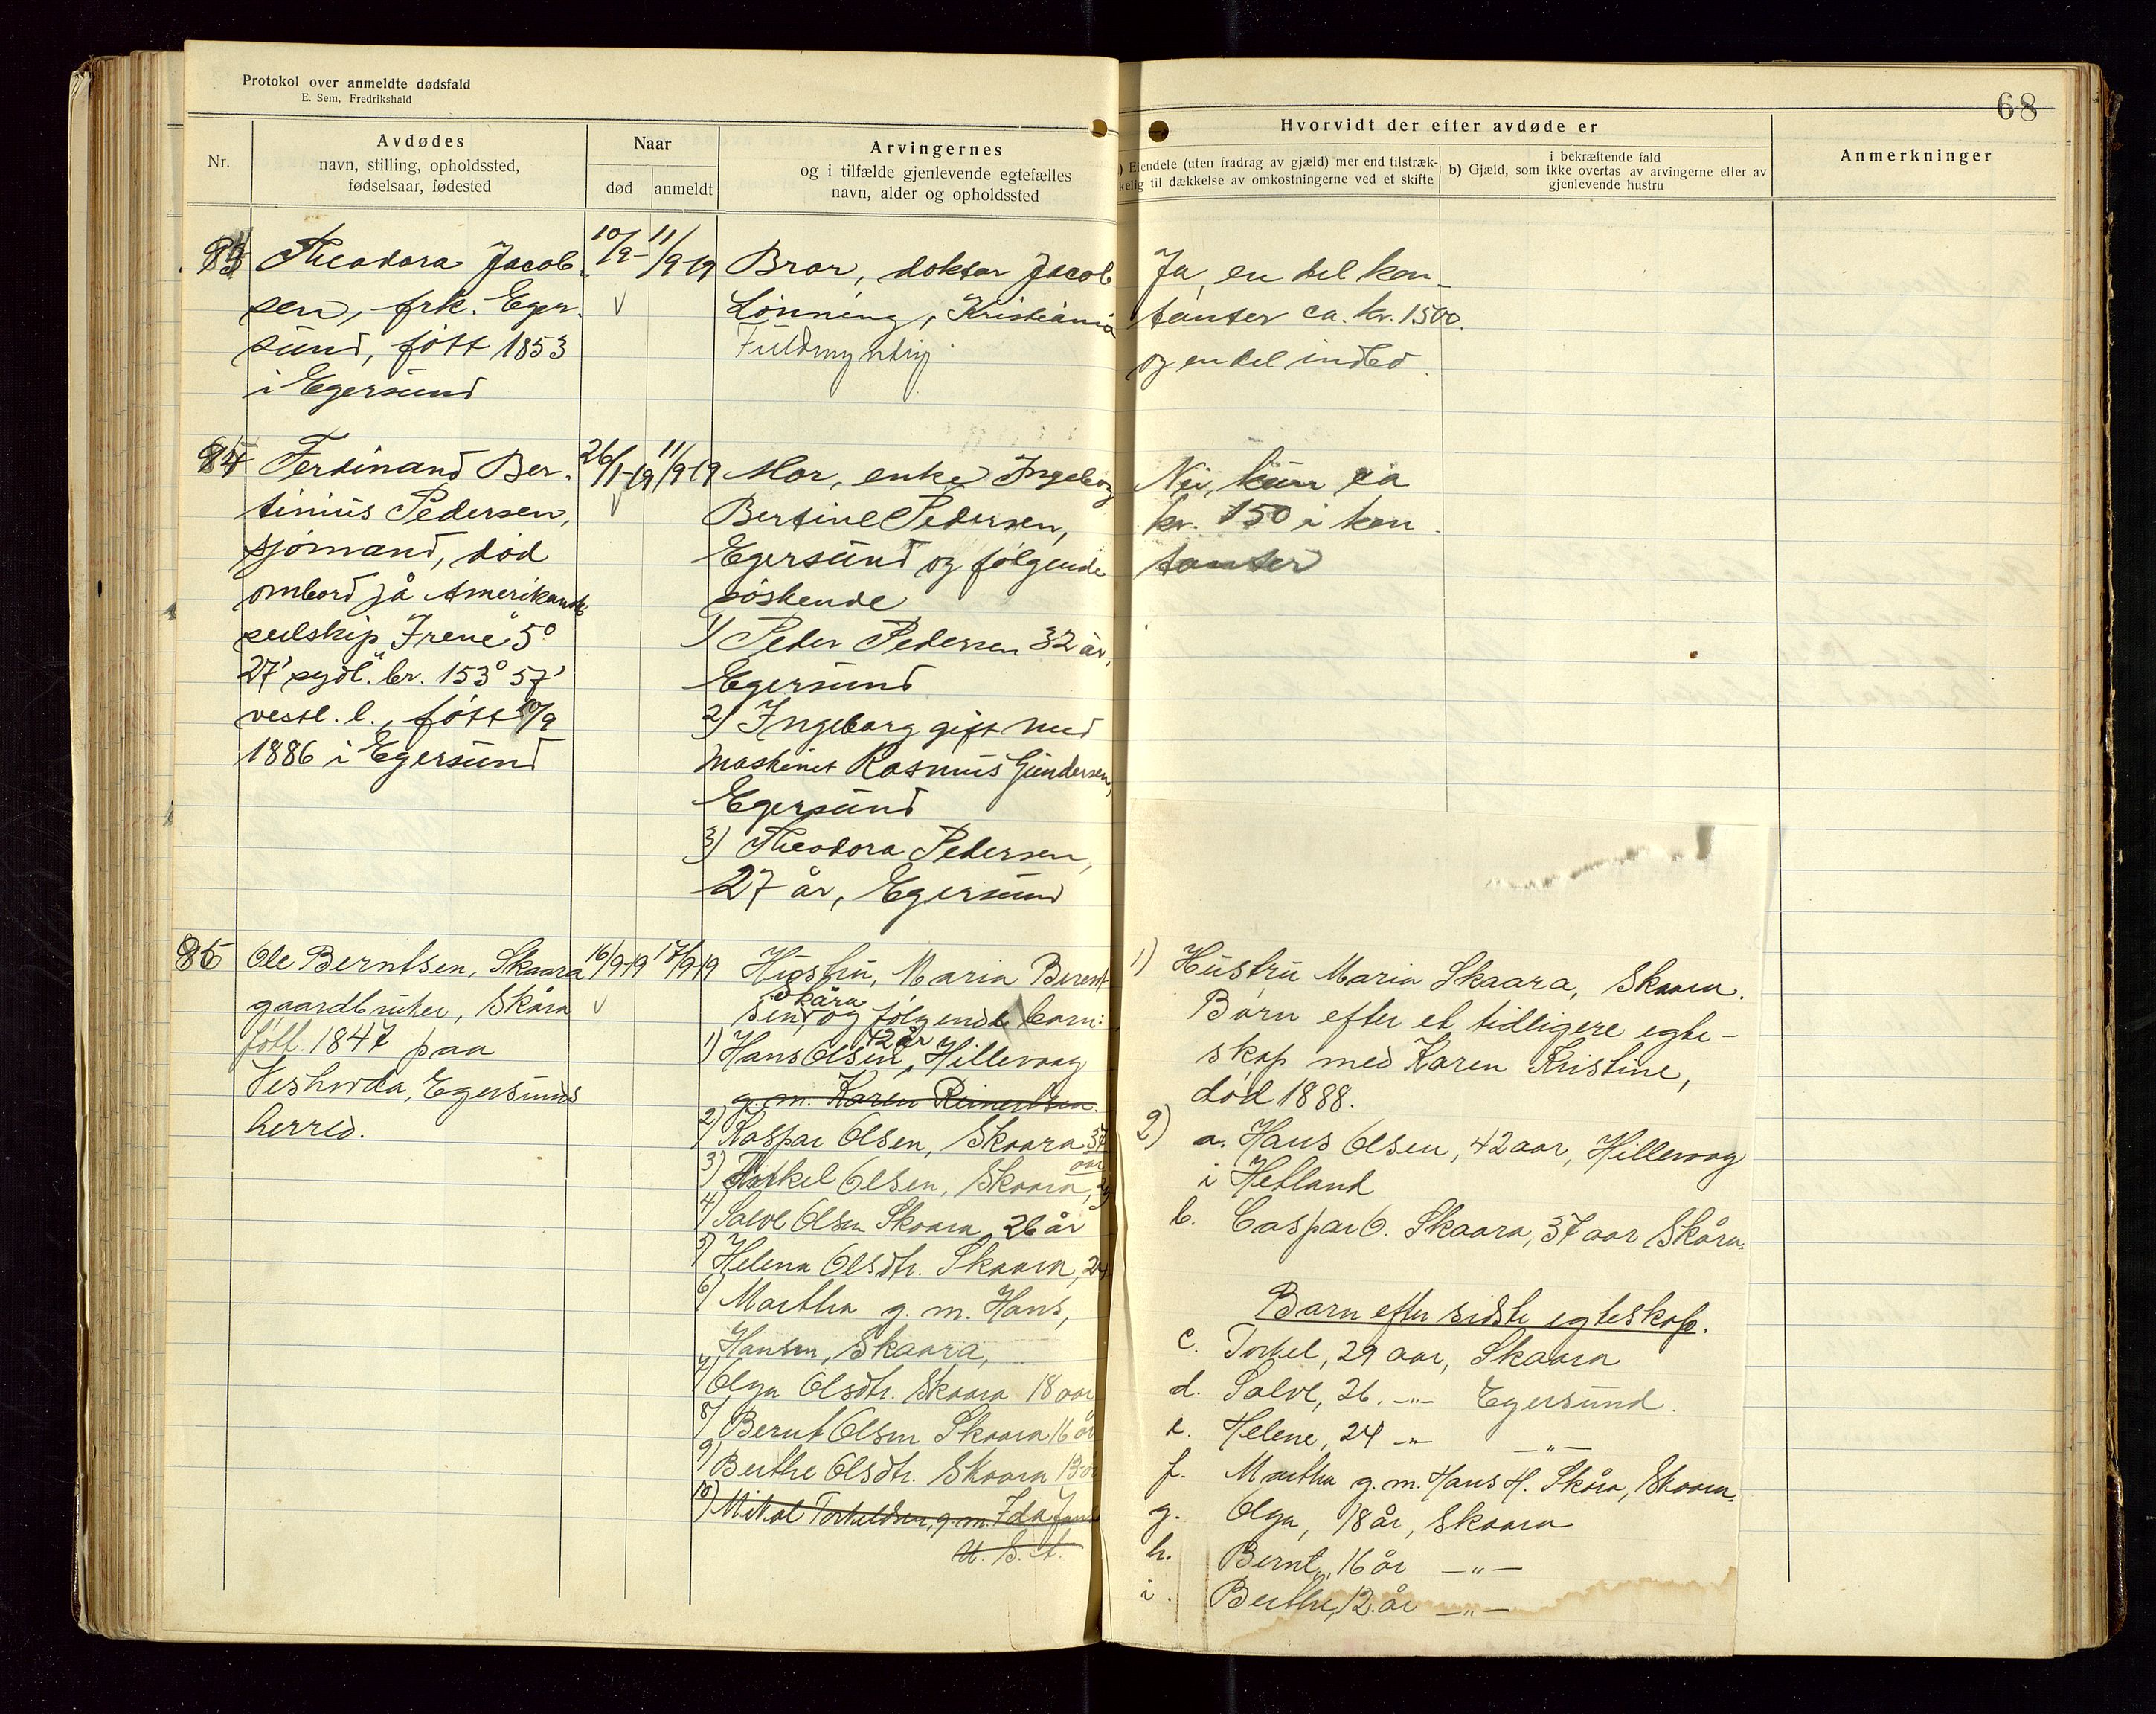 Protokol over anmeldte dødsfald
E. Sem, Fredrikshald
68
Nr.
Avdødes
navn, stilling, opholdssted,
fødselsaar, fødested
Naar
død
anmeldt
Arvingernes
og i tilfælde gjenlevende egtefælles
navn, alder og opholdssted
Hvorvidt der efter avdøde er
Eiendele (uten fradrag av gjæld) mer end tilstræk-
kelig til dækkelse av omkostningerne ved et skifte
b) Gjæld, som i bekræftende fald
ikke overtas av arvingerne eller av
gjenlevende hustru
Anmerkninger
83
Theodora Jacob-
sen, frk. Eger-
sund, født 1853
i Egersund
10/9-
11/9 19
Bror, doktor Jacob
Lönning, Kristiania
Fuldmyndig
Ja, en del kon-
tanter ca. kr. 1500.
og en del indbo.
84
Ferdinand Ber-
tinius Pedersen,
sjömand, död
ombord på Amerikansk
seilskip "Irene" 5°
27' sydl. br. 153° 57'
vestl. l., født /9
1886 i Egersund
26/1-19
11/9-19
Mor, enke Ingeborg
Bertine Pedersen,
Egersund og følgende
söskende
1) Peder Pedersen 32 år,
Egersund
2) Ingeborg gift med
maskinist Rasmus Gundersen,
Egersund
3) Theodora Pedersen,
27 år, Egersund
Nei, kun ca
kr. 150 i kon-
tanter
85
Ole Berntsen, Skaara
gaardbruker, Skåra
født 1847 paa
Egersunds
herred.
16/9 19
17/9 19
Hustru, Maria Berent-
Skåra
sen, og følgende barn:
42 år
1) Hans Olsen, Hillevaag
g. m. Karen Reinertsen.
2) Kaspar Olsen, Skaara 37
aar
3) Torkel Olsen, Skaara, 29
4) Salve Olsen Skaara 26 år
5) Helena Olsdtr. Skaara, 24
6) Martha g. m. Hans,
Hansen, Skaara,
7) Olga Olsdtr. Skaara 18 aar
8) Bernt Olsen Skaara 16 år
9) Berthe Olsdtr. Skaara 13 år
10) Mikal Torkeldsen, g. m. Ida
U. S. A.
1) Hustru Maria Skaara, Skaara.
Børn efter et tidligere egte-
skap med Karen Kristine,
død 1888.
2) a. Hans Olsen, 42 aar, Hillevaag
i Hetland
b. Caspar O. Skaara, 37 aar Skåra
Barn efter sidste egteskap.
c. Torkel, 29 aar, Skaara
d. Salve, 26. -"- Egersund.
e. Helene, 24 -"- -"-
f. Martha g. m. Hans H. Skåra, Skaara.
g. Olga, 18 år, Skaara
h. Bernt, 16 år -"-
i. Berthe, 12 år -"-